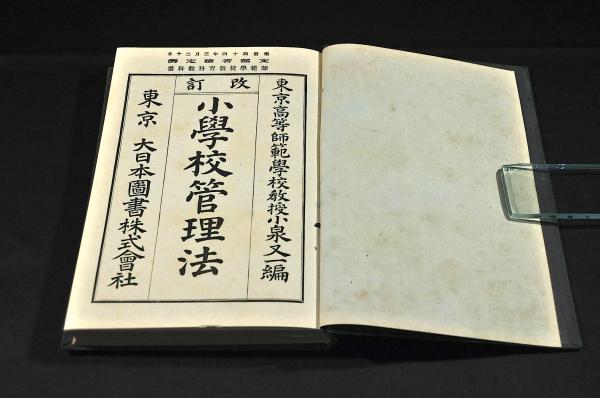 明治四十四年三月三十日
文部省檢定濟
師範學校敎育科敎科書
改訂
東京高等師範學校敎授小泉又一編
小學校管理法
東京 大日本圖書株式會社